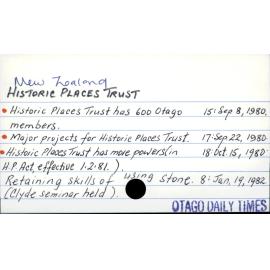 New Zealand
HISTORIC PLACES TRUST
• Historic Places Trust has 600 Otago 15: Sep 8, 1980.
members.
• Major projects for Historic Places Trust. 17: Sep. 22, 1980.
• Historic Places Trust has more powers (in 18: Oct. 15, 1980.
H.P. Act, effective 1.2.81.).
Retaining skills of using stone. 8: Jan. 19, 1982.
(Clyde seminar held).
OTAGO DAILY TIMES